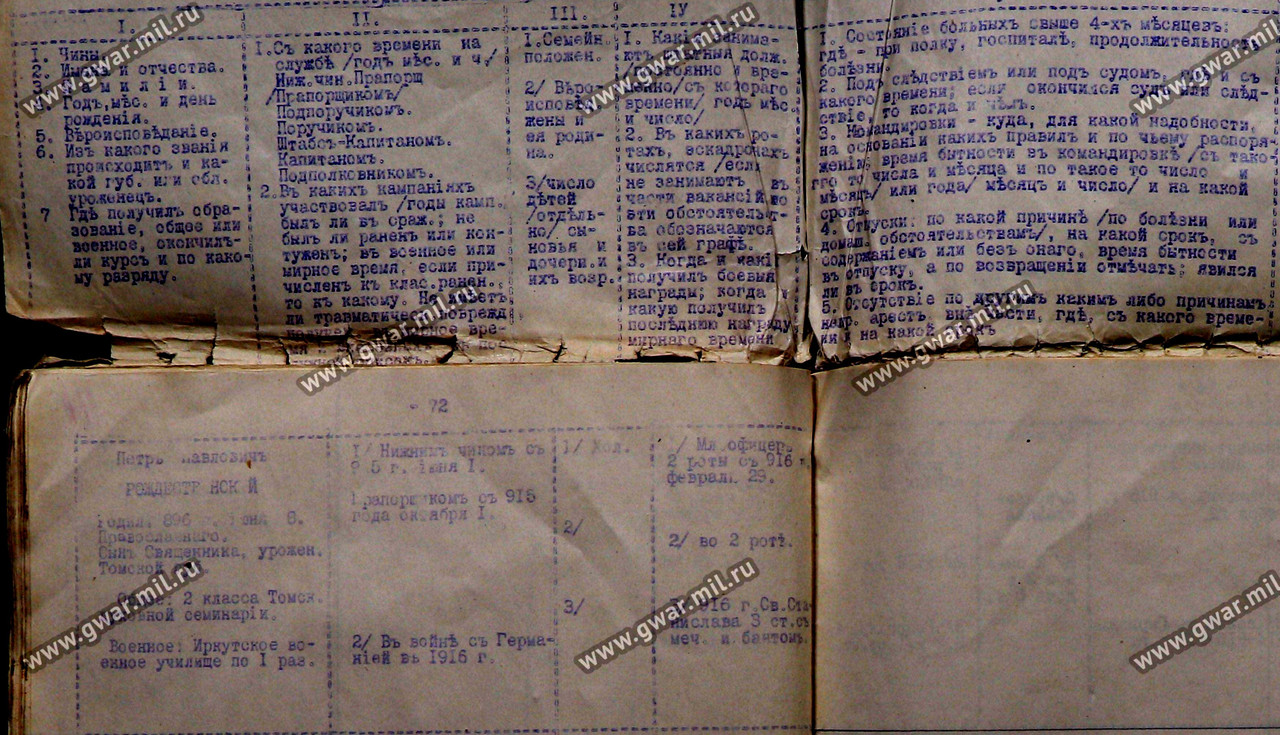 I.
1. Чины.
2. и отчества.
4. Годъ, мѣс. и день
рожденія.
5. Вѣроисповѣданіе.
6. Изъ какого званія
происходитъ и ка-
кой губ. или обл.
уроженецъ.
7 Гдѣ получилъ обра-
зованіе, общее или
военное, окончилъ-
ли курсъ и по како-
му разряду.
II.
I. Съ какого времени на
службѣ /годъ мѣс. и ч./
Ниж.чин.Прапорщ
/Прапорщикомъ/
Подпоручикомъ.
Поручикомъ.
Штабсъ-Капитаномъ.
Капитаномъ.
Подполковникомъ.
2. Въ какихъ кампаніяхъ
участвовалъ /годы камп.
былъ ли въ сраж.; не
былъ ли раненъ или кон-
туженъ; въ военное или
мирное время, если при-
численъ къ клас.ранен.
то къ какому. Не имѣетъ
ли травматич.
III.
I.Семейн.
положен.
2/ Вѣро-
исповѣд
жены и
ея роди-
на.
3/число
дѣтей
/отдѣль-
но/ сы-
новья и
дочери.и
ихъ возр.
IV
I. Какія занима-
2. Въ какихъ ро-
тахъ, ескадронахъ
числятся /если
не занимаютъ въ
части вакансій по
обстоятельст-
ва обозначаются
въ сей графѣ.
3. Когда и какія
получилъ боевыя
награды; когда
какую получилъ
послѣднюю награду
мирнаго времени
1. Состояніе больныхъ свыше 4-хъ мѣсяцевъ:
гдѣ - при полку, госпиталѣ, продолжительность
болѣзни
2. Подъ слѣдствіемъ или подъ судомъ, и съ
какого времени; если окончился судъ или слѣд-
ствіе, то когда и чѣмъ.
3. Командировки - куда, для какой надобности,
на основаніи какихъ правилъ и по чьему распоря-
женію, время бытности въ командировкѣ /съ тако-
го то числа и мѣсяца и по такое то число и
мѣсяцъ/ или года/ мѣсяцъ и число/ и на какой
срокъ.
4. Отпуски: по какой причинѣ /по болѣзни или
домаш. обстоятельствамъ/, на какой срокъ, съ
содержаніемъ или безъ онаго, время бытности
въ отпуску, а по возвращеніи отмѣчать; явился
ли въ срокъ.
5. Отсутствіе по другимъ какимъ либо причинамъ
напр. арестъ гдѣ, съ какого време-
ни и на какой срокъ
- 72
Петръ Павловичъ
РОЖДЕСТВЕНСКІЙ
Родил. 896 г. 6.
Православнаго.
Сынъ Священника, урожен.
Томской губ.
Общее: 2 класса Томск.
духовной семинаріи.
Военное: Иркутское во-
енное училище по I раз.
I/ Нижнимъ чиномъ съ
I.
Прапорщикомъ съ 915
года октября I.
2/ Въ войнѣ съ Герма-
ніей въ 1916 г.
1/ Хол.
2/
3/
1/ Мл.офицеръ
2 роты съ 916 г.
февраля 29.
2/ во 2 ротѣ.
3/ 916 г.Св.Ста-
нислава 3 ст.съ
меч. и бантомъ.
www.gwar.mil.ru
www.gwar.mil.ru
www.gwar.mil.ru
www.gwar.mil.ru
www.gwar.mil.ru
www.gwar.mil.ru
www.gwar.mil.ru
www.gwar.mil.ru